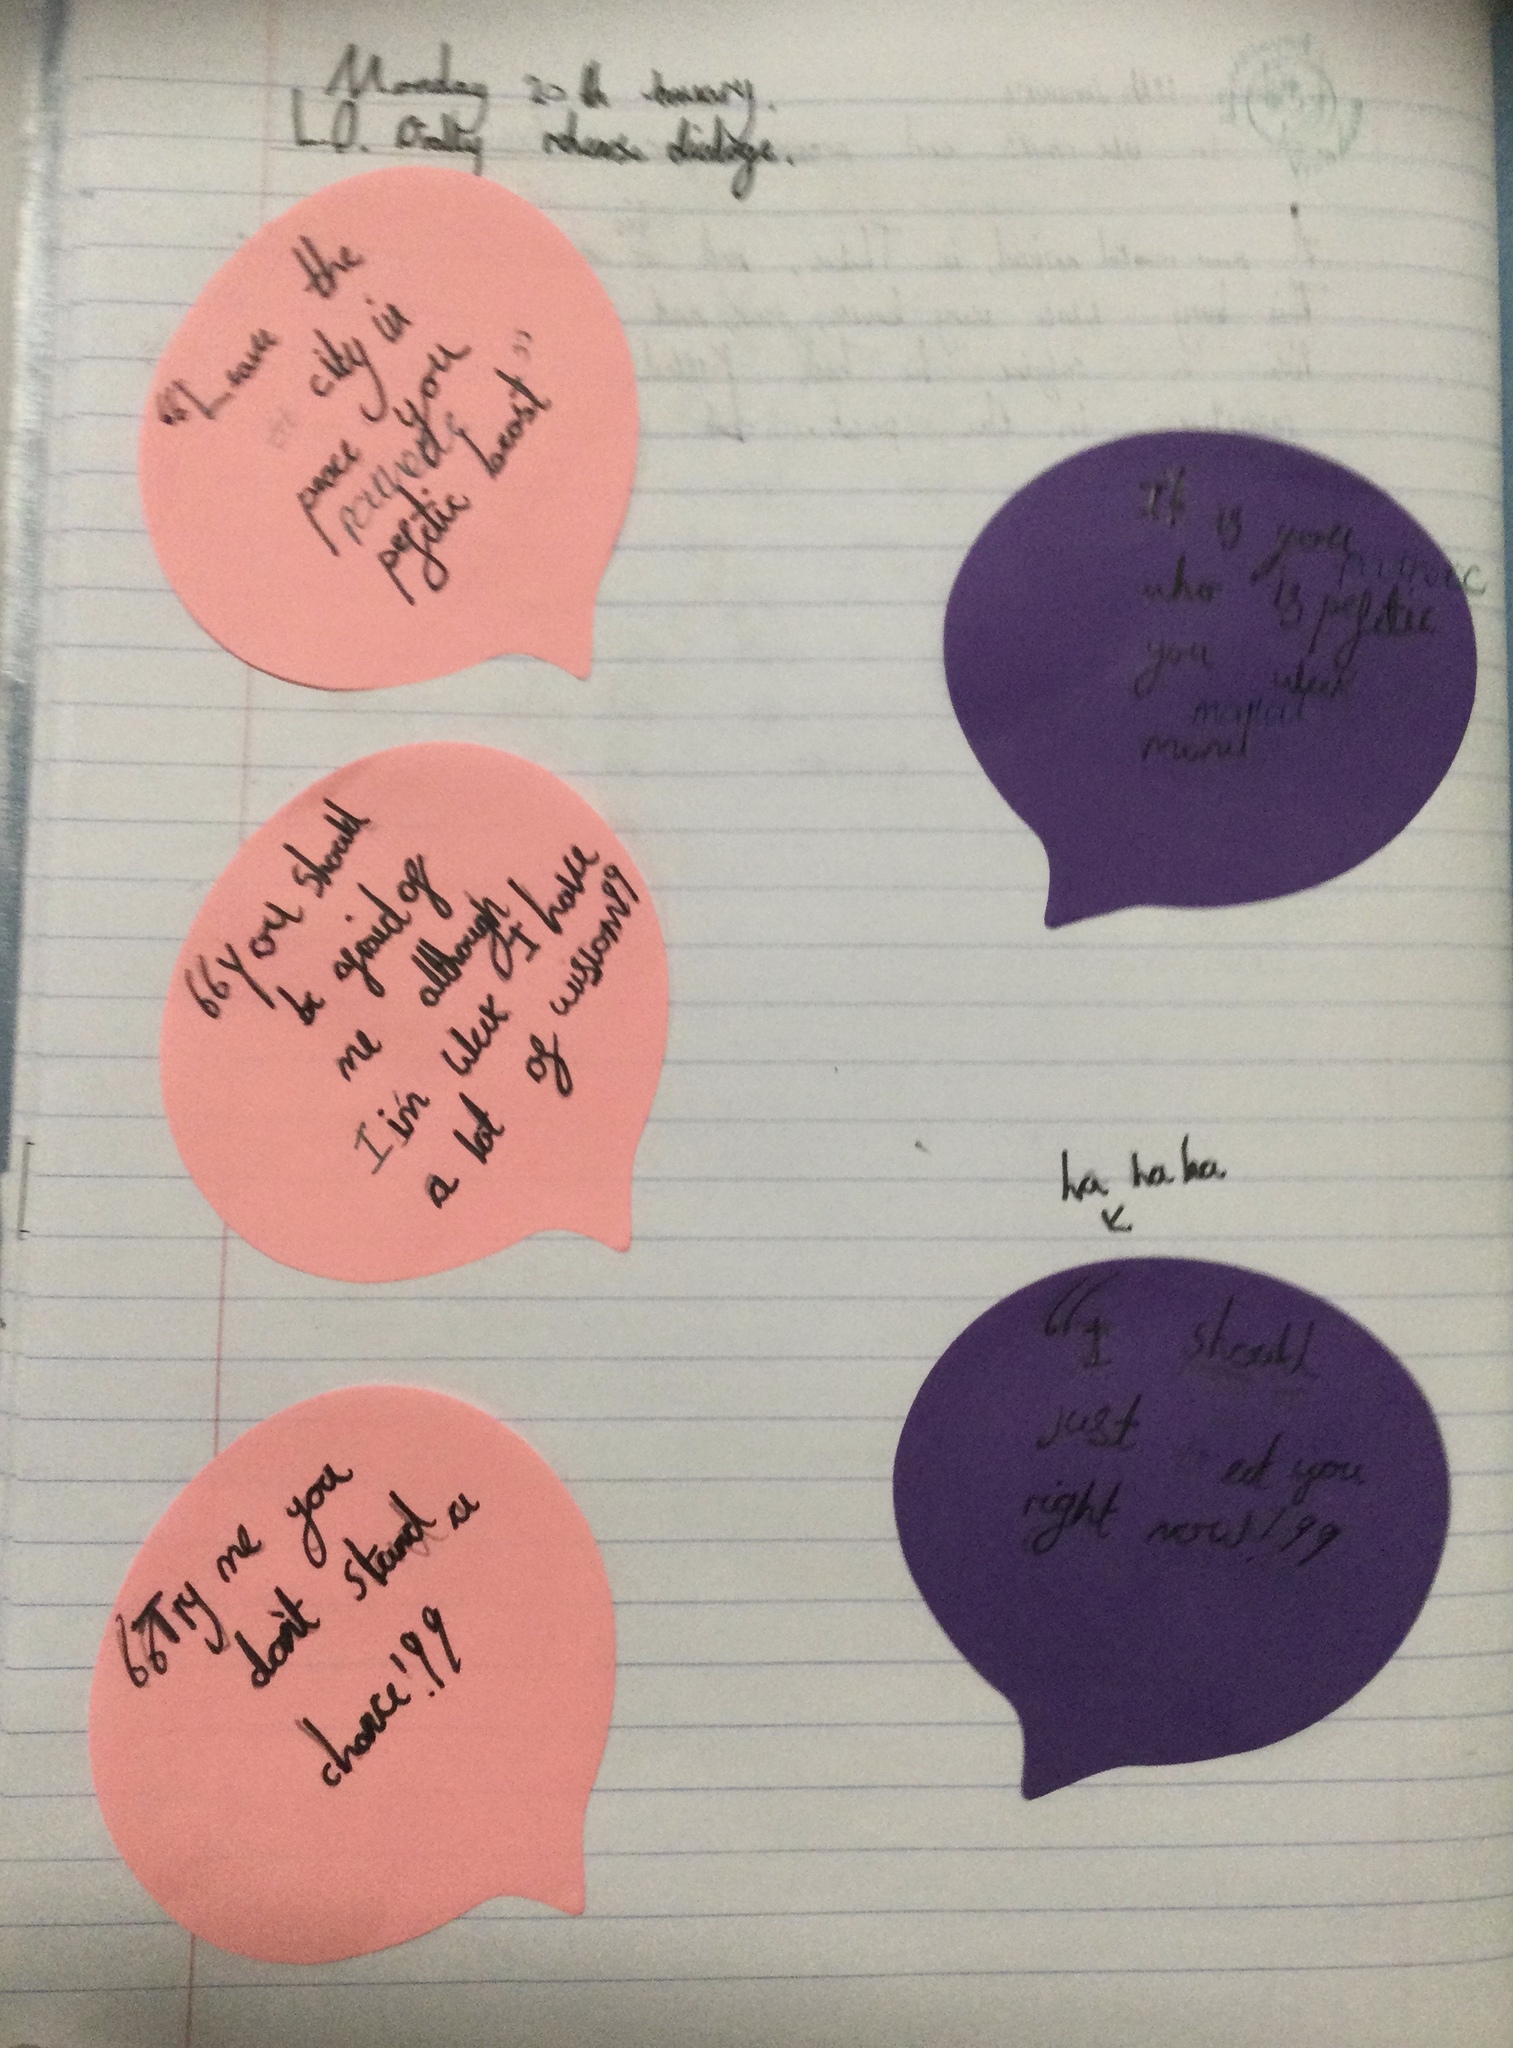 Monday 20th January.
L.O. Orally reherse dialoge.
"Leave the
city in
peace you
pefetic beast"
It is you
who is pefetic
you weak
man
"You should
be afraid of
me although
I im weak I have
a lot of wisdom"
ha ha ha
"I should
just eat you
right now!"
"Try me you
don't stand a
chance!"